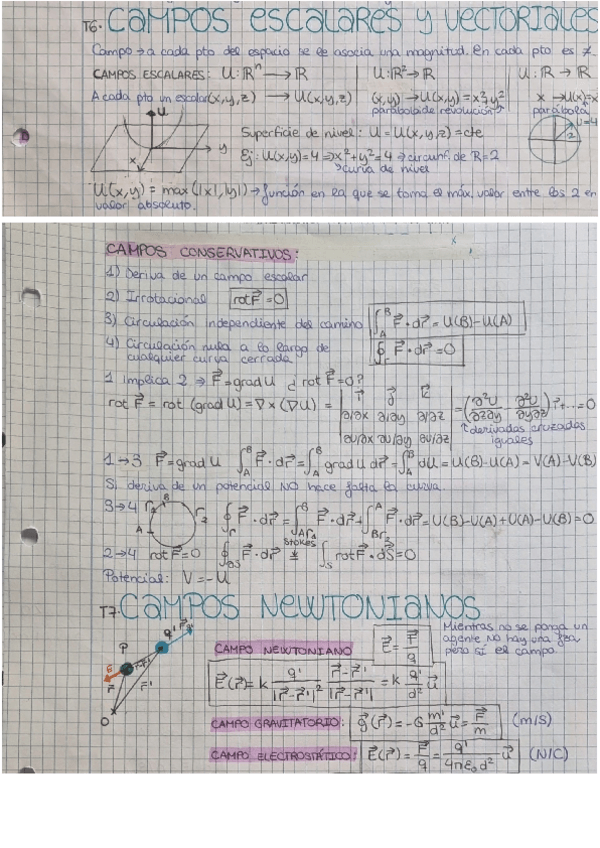 T6. CAMPOS ESCALARES y VECTORIALES
Campo → a cada pto del espacio se le asocia una magnitud. En cada pto es ≠.
CAMPOS ESCALARES: U: ℝⁿ → ℝ | U: ℝ² → ℝ | U: ℝ → ℝ
A cada pto un escalar (x,y,z) → U(x,y,z) (x,y) → U(x,y) = x²+y² x → U(x)=x
parábola de revolución parábola
U U=4
y Superficie de nivel: U = U(x,y,z) = cte 2
x Ej: U(x,y)=4 ⇒ x²+y²=4 → circunf. de R=2
curva de nivel
U(x,y) = max(|x|,|y|) → función en la que se toma el máx. valor entre los 2 en
valor absoluto.
CAMPOS CONSERVATIVOS:
1) Deriva de un campo escalar
2) Irrotacional rot F⃗ = 0
3) Circulación independiente del camino ∫_A^B F⃗·dr⃗ = U(B)-U(A)
4) Circulación nula a lo largo de
cualquier curva cerrada ∮ F⃗·dr⃗ = 0
1 implica 2 → F⃗ = grad U ¿ rot F⃗ = 0?
rot F⃗ = rot (grad U) = ∇ × (∇U) = | i⃗ j⃗ k⃗ | ∂/∂x ∂/∂y ∂/∂z | ∂U/∂x ∂U/∂y ∂U/∂z | = (∂²U/∂z∂y - ∂²U/∂y∂z) i⃗ + ... = 0
derivadas cruzadas
iguales
1→3 F⃗ = grad U ∫_A^B F⃗·dr⃗ = ∫_A^B grad U dr⃗ = ∫_A^B dU = U(B)-U(A) = V(A)-V(B)
Si deriva de un potencial NO hace falta la curva.
3→4 Γ₁ B A Γ₂ ∮_Γ F⃗·dr⃗ = ∫_AΓ₁^B F⃗·dr⃗ + ∫_BΓ₂^A F⃗·dr⃗ = U(B)-U(A)+U(A)-U(B) = 0
Stokes
2→4 rot F⃗ = 0 ∮_∂S F⃗·dr⃗ = ∫_S rot F⃗·dS⃗ = 0
Potencial: V = -U
T7: CAMPOS NEWTONIANOS
P q' F⃗ r⃗ r⃗' O
CAMPO NEWTONIANO E⃗ = F⃗/q
Mientras no se ponga un
agente NO hay una fza,
pero sí el campo.
E⃗(r⃗) = k q'/|r⃗-r⃗'|² (r⃗-r⃗')/|r⃗-r⃗'| = k q'/d² u⃗
CAMPO GRAVITATORIO: g⃗(r⃗) = -G m'/d² u⃗ = F⃗/m (m/s)
CAMPO ELECTROSTÁTICO: E⃗(r⃗) = F⃗/q = q'/4πε₀d² u⃗ (N/C)